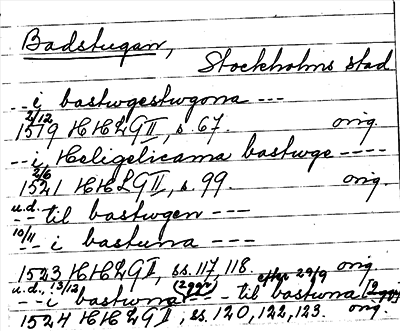 Badstugan,
Stockholms stad
-- i bastwgestwgona ---
2/12
1519 HHLG II, s. 67. orig.
-- i Heligelicama bastwge ----
2/6
1521 HHLG II, s. 99. orig.
u.d. -- til bastwgen ---
10/11 -- i bastuna ---
1523 HHLG II, ss. 117, 118. orig.
u.d., 13/12 (2ggr) efter 29/9
-- i bastwna - - til bastuna (2ggr)
1524 HHLG II, ss. 120, 122, 123. orig.